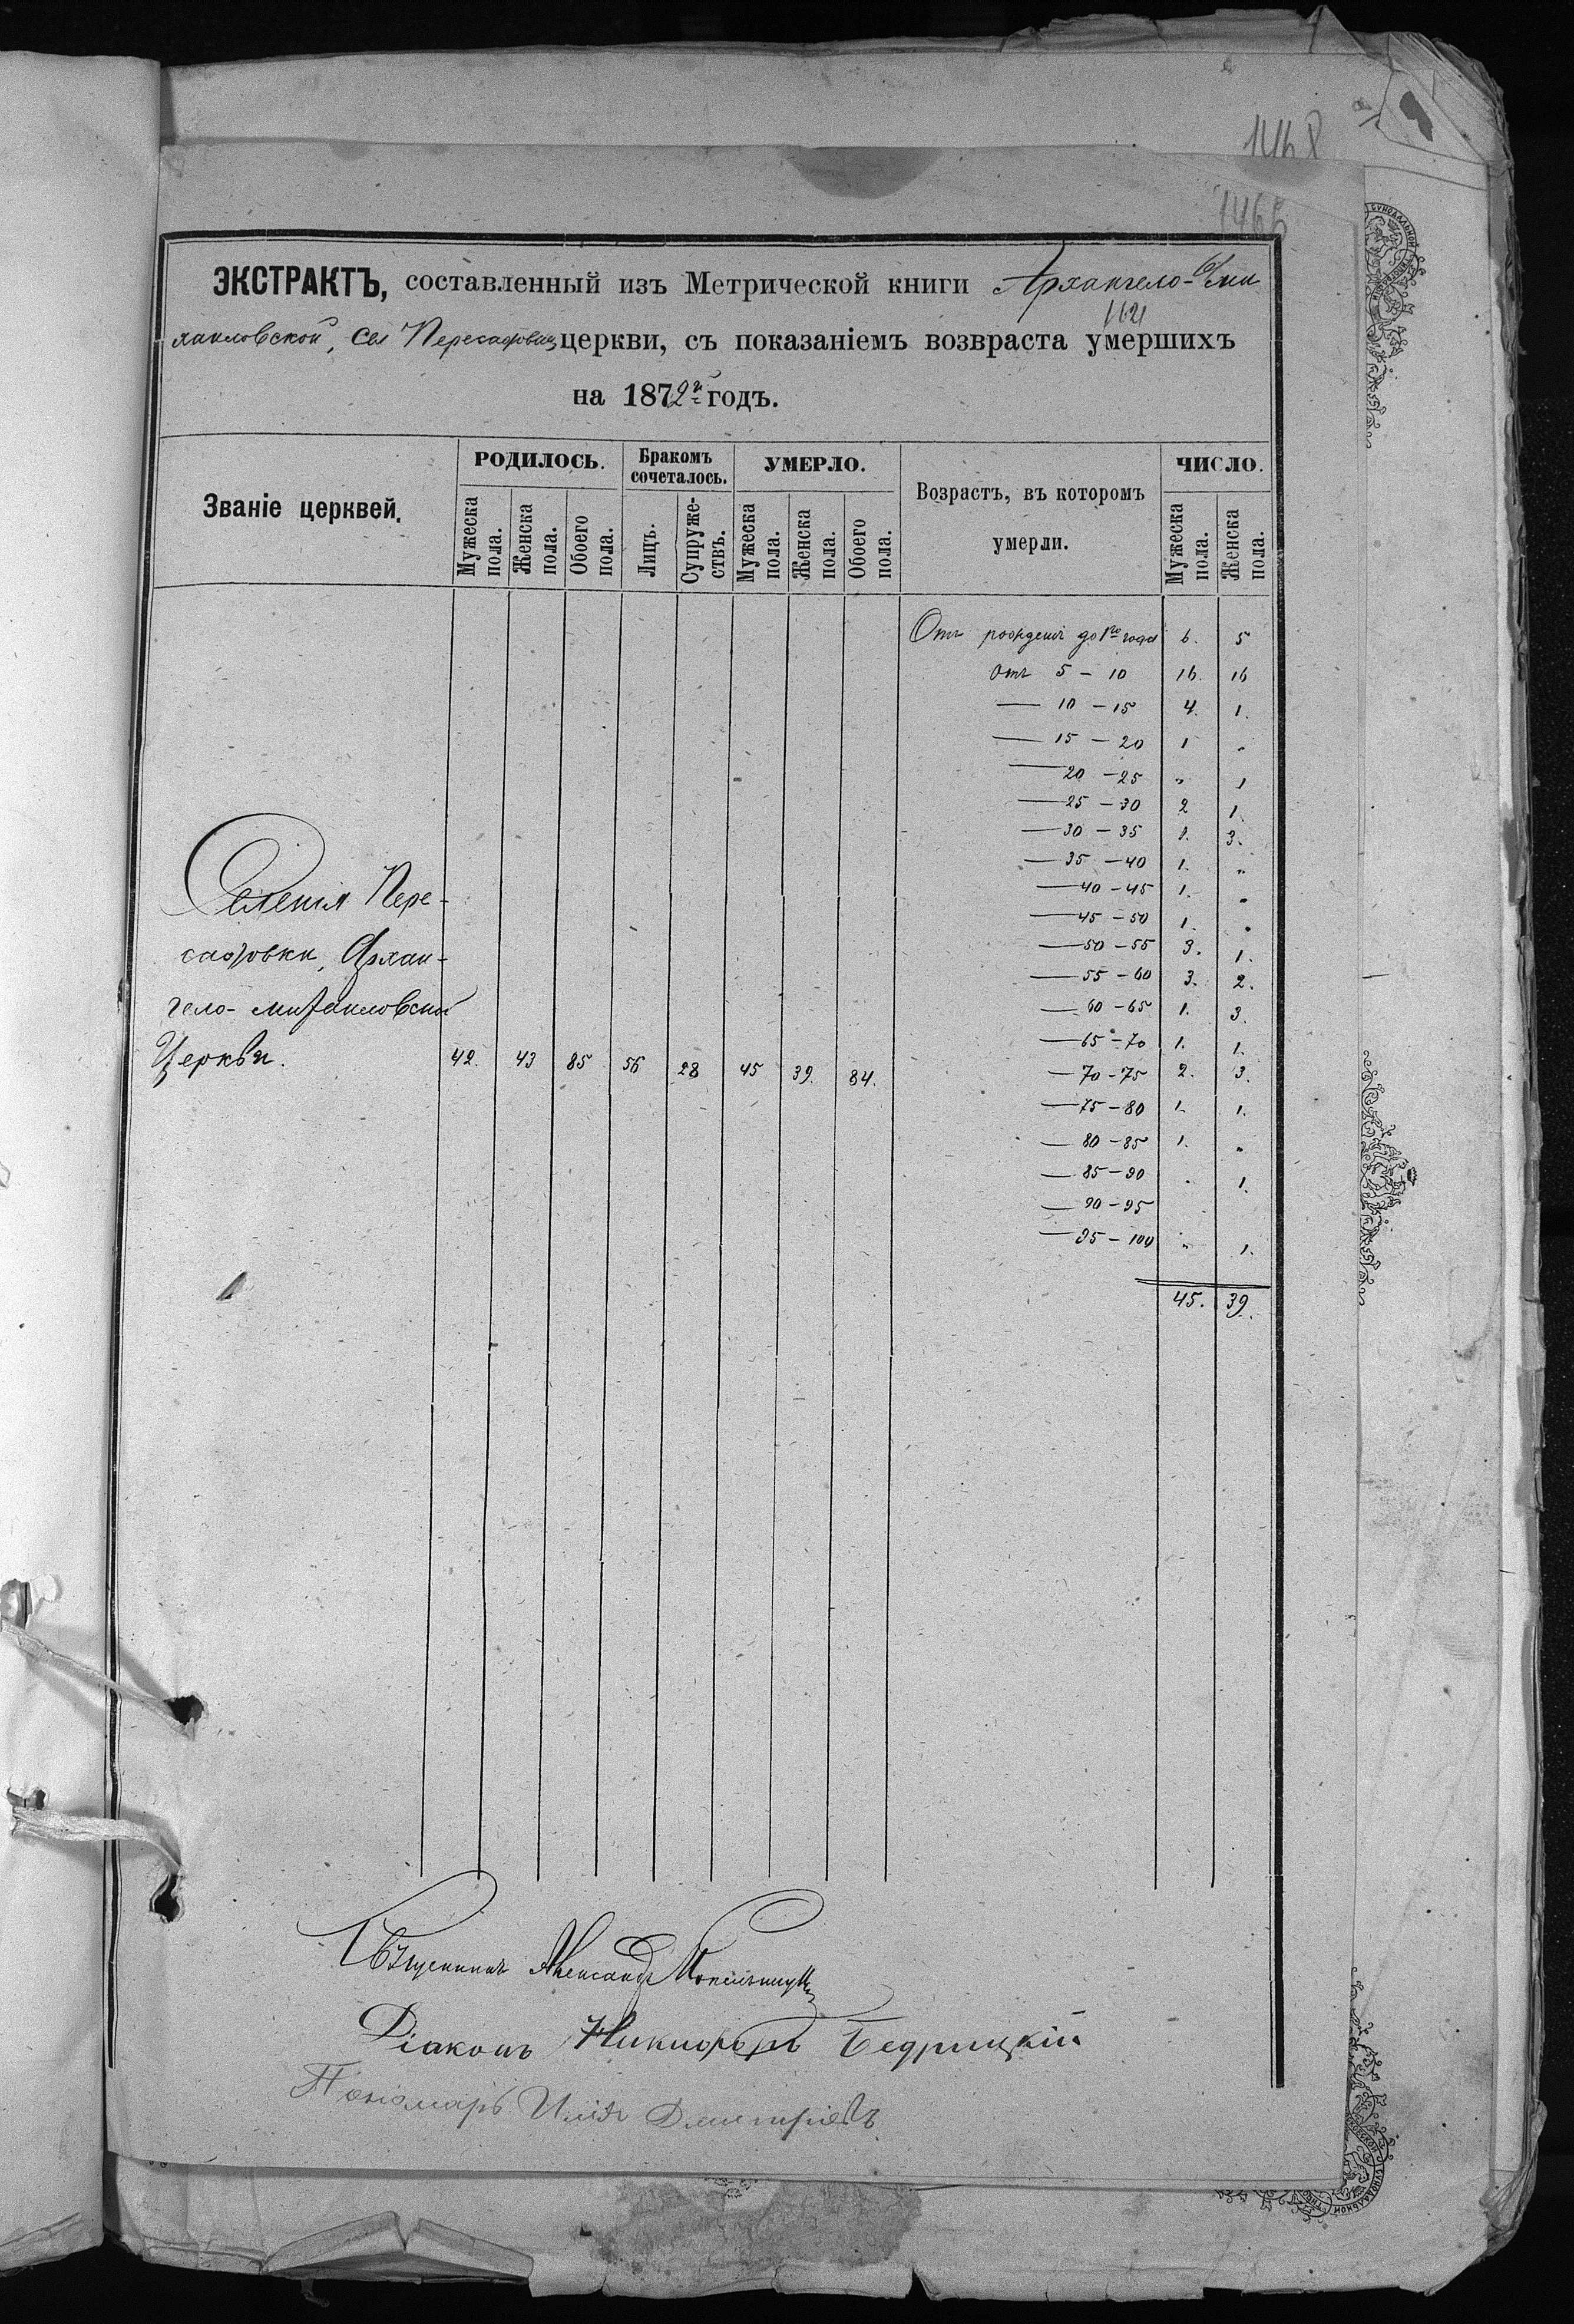 1468
1466
ЭКСТРАКТЪ, составленный изъ Метрической книги Архангело-Ми
1621
хаиловской, сел Пересадовки церкви, съ показаніемъ возвраста умершихъ
на 1872й годъ.
Званіе церквей.
РОДИЛОСЬ.
Бракомъ сочеталось.
УМЕРЛО.
Возрастъ, въ которомъ умерли.
ЧИСЛО.
Мужеска пола.
Женска пола.
Обоего пола.
Лицъ.
Супружествъ.
Мужеска пола.
Женска пола.
Обоего пола.
Мужеска пола.
Женска пола.
Отъ рожденія до 1го года 6. 5
Отъ 5 – 10 16. 16
— 10 – 15 4. 1.
— 15 – 20 1 "
— 20 – 25 " 1
— 25 – 30 2 1.
— 30 – 35 1. 3.
— 35 – 40 1. "
— 40 – 45 1. "
— 45 – 50 1. "
— 50 – 55 3. 1.
— 55 – 60 3. 2.
— 60 – 65 1. 3.
— 65 – 70 1. 1.
— 70 – 75 2. 3.
— 75 – 80 1. 1.
— 80 – 85 1. "
— 85 – 90 " 1.
— 90 – 95
— 95 – 100 " 1.
45. 39.
Селенія Пере-
садовки, Архан-
гело-Михаиловской
Церкви. 42. 43 85 56 28 45 39. 84.
Священникъ Александръ
Діаконъ Никифоръ Бедрицкій
Пономарь Илія Дмитріевъ